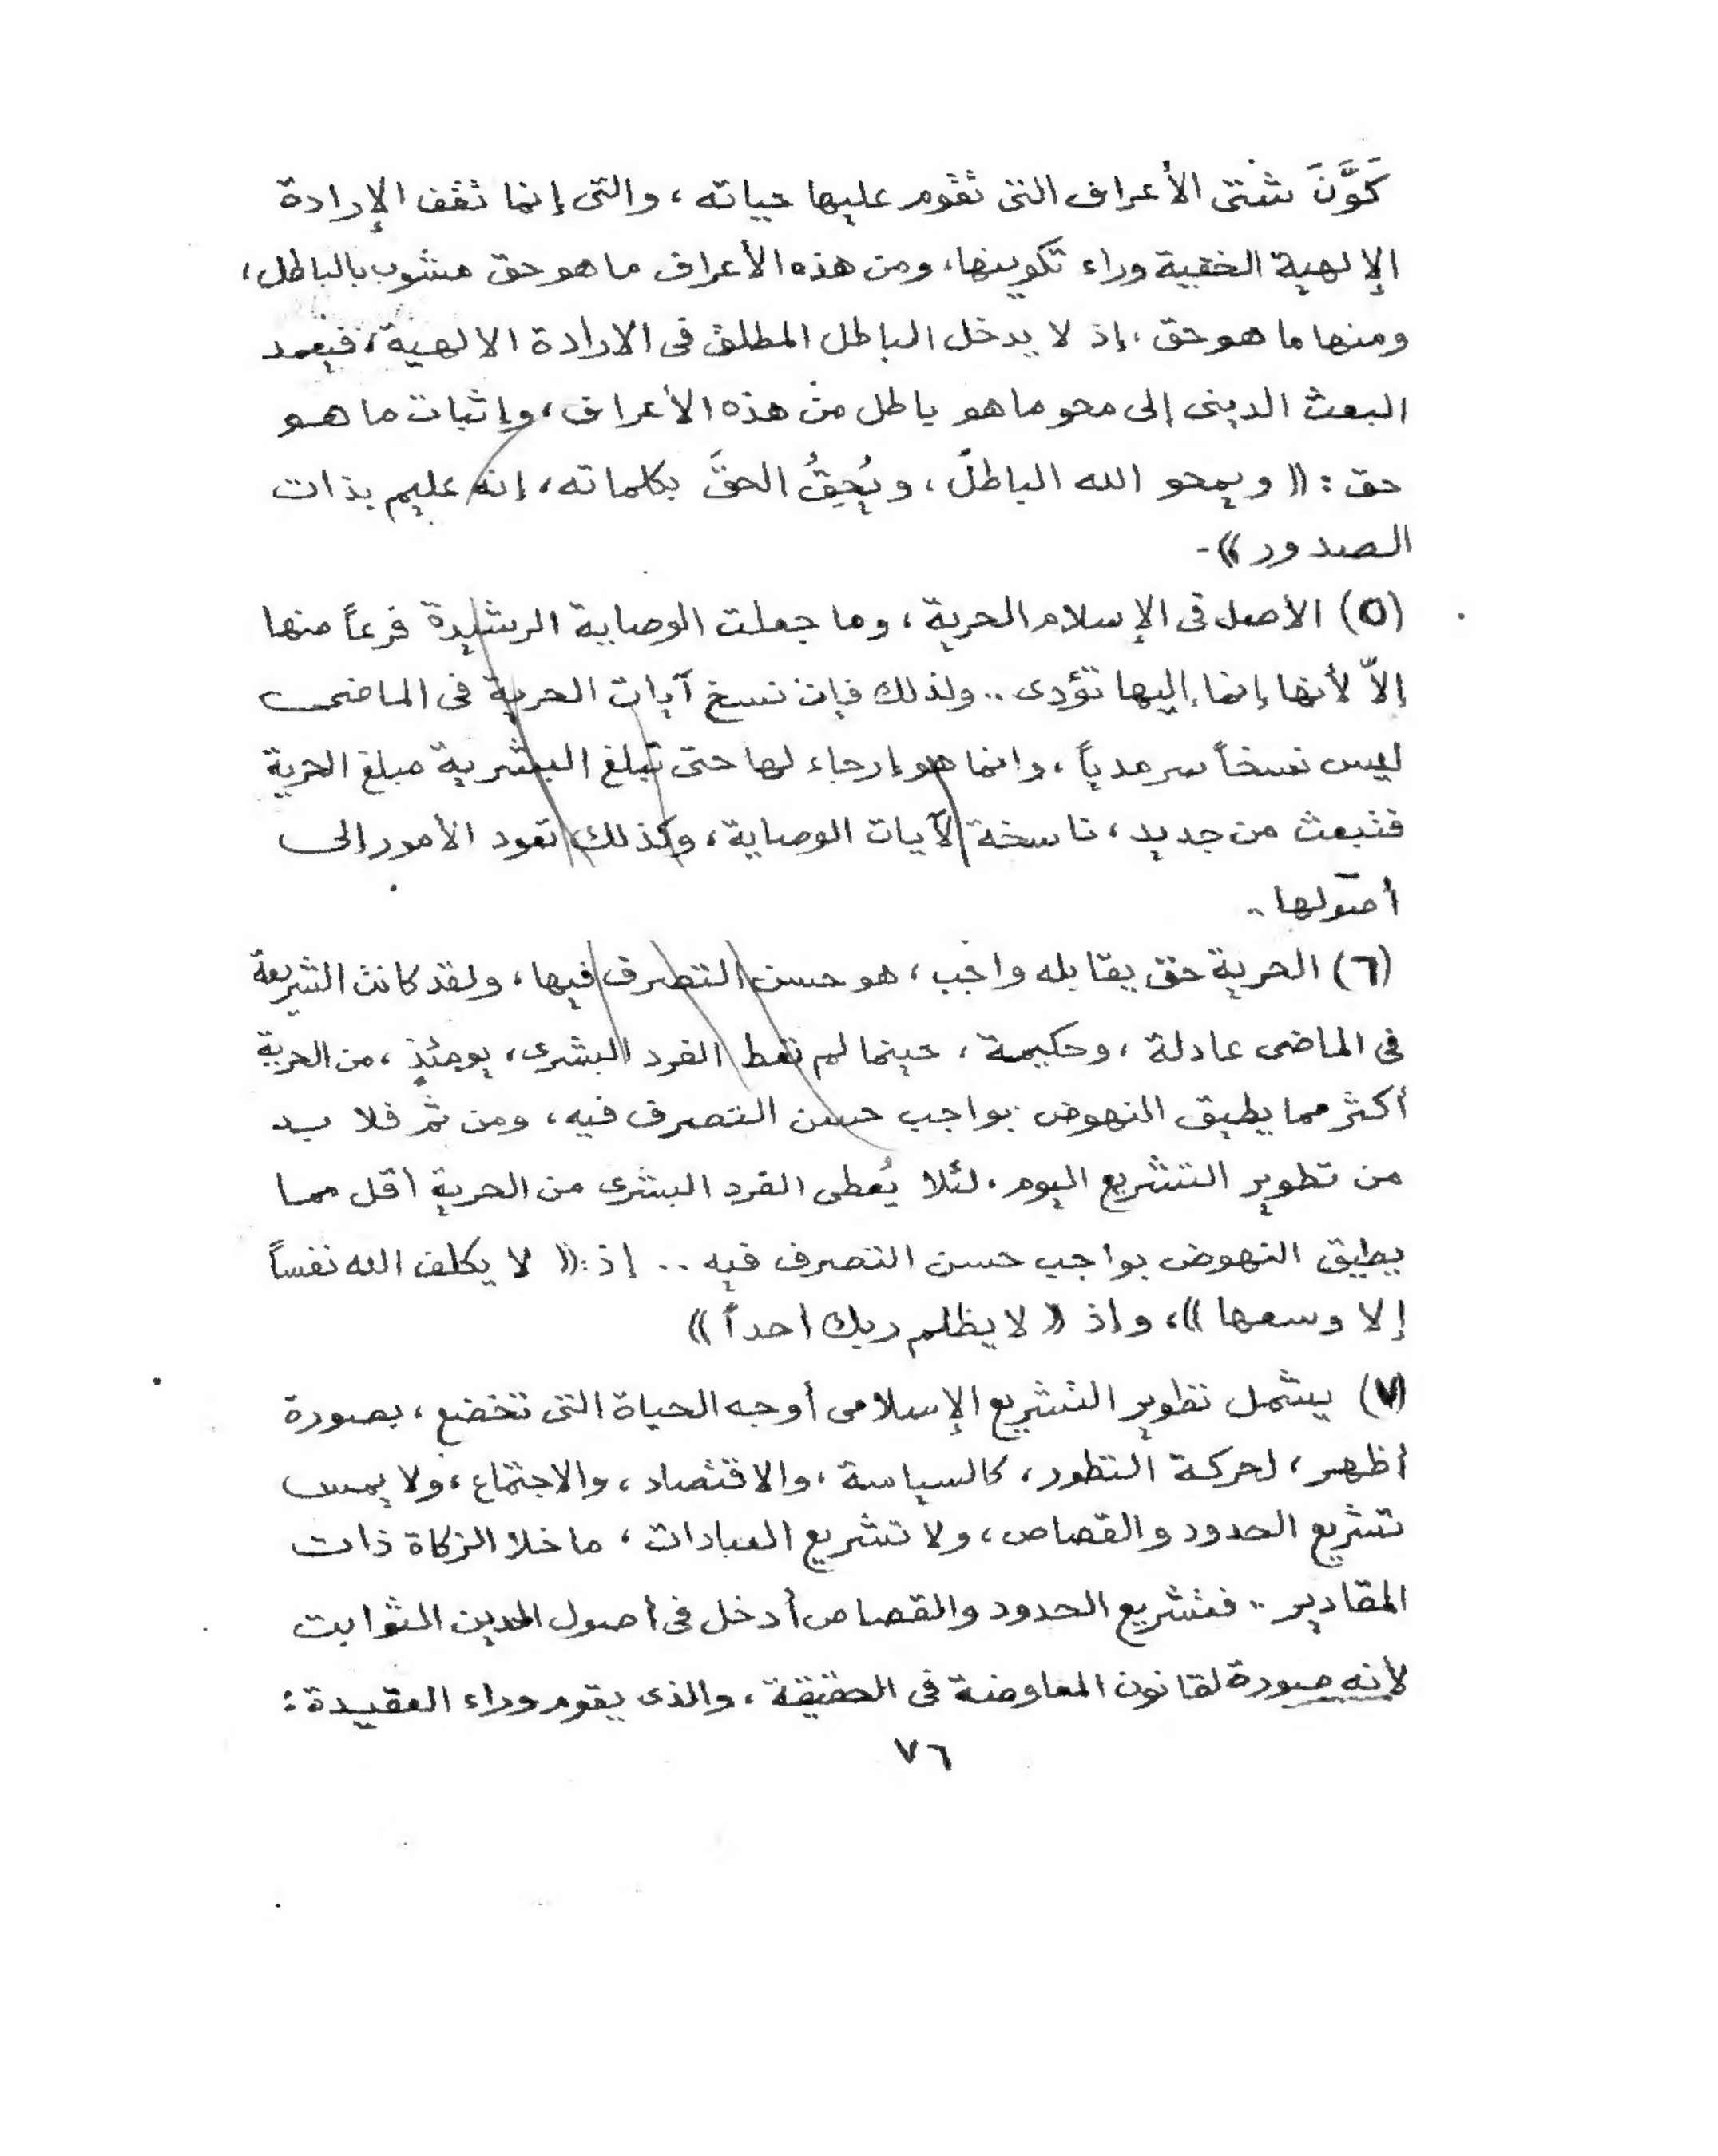 كَوَّنَ شتى الأعراف التى تقوم عليها حياته ، والتى إنما تقف الإرادة
الإلهية الخفية وراء تكوينها، ومن هذه الأعراف ما هو حق مشوب بالباطل،
ومنها ما هو حق ، إذ لا يدخل الباطل المطلق فى الارادة الالهية، فيعمد
البعث الدينى إلى محو ما هو باطل من هذه الأعراف ، وإثبات ما هو
حق : (( ويمحو الله الباطلَ ، ويُحِقُّ الحقَّ بكلماته ، إنه عليم بذات
الصدور )) -
(٥) الأصل فى الإسلام الحرية ، وما جعلت الوصاية الرشيدة فرعاً منها
إلاّ لأنها إنما إليها تؤدى .. ولذلك فإن نسخ آيات الحرية فى الماضى
ليس نسخاً سرمدياً ، وانما هو إرجاء لها حتى تبلغ البشرية مبلغ الحرية
فتبعث من جديد ، ناسخة لآيات الوصاية ، وكذلك تعود الأمور إلى
أصولها ..
(٦) الحرية حق يقابله واجب ، هو حسن التصرف فيها ، ولقد كانت الشريعة
فى الماضى عادلة ، وحكيمة ، حينما لم تعط الفرد البشرى ، يومئذٍ ، من الحرية
أكثر مما يطيق النهوض بواجب حسن التصرف فيه ، ومن ثم فلا بد
من تطوير التشريع اليوم ، لئلا يُعطى الفرد البشرى من الحرية أقل مما
يطيق النهوض بواجب حسن التصرف فيه .. إذ : (( لا يكلف الله نفساً
إلا وسعها )) ، وإذ (( لا يظلم ربك احداً ))
(٧) يشمل تطوير التشريع الإسلامى أوجه الحياة التى تخضع ، بصورة
أظهر ، لحركة التطور ، كالسياسة ، والاقتصاد ، والاجتماع ، ولا يمس
تشريع الحدود والقصاص ، ولا تشريع العبادات ، ما خلا الزكاة ذات
المقادير .. فتشريع الحدود والقصاص أدخل فى أصول الدين الثوابت
لأنه صورة لقانون المعاوضة فى الحقيقة ، والذى يقوم وراء العقيدة :
٧٦